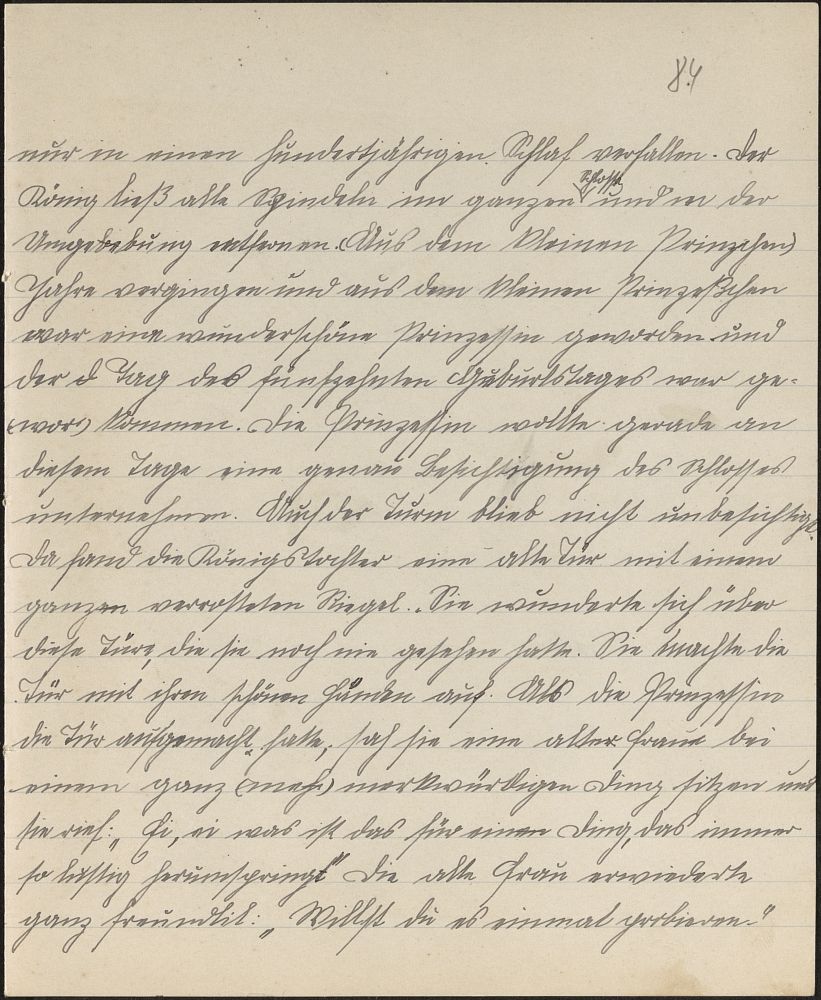 84
nur in einen hundertjährigen Schlaf verfallen. Der
Schloße
König ließ alle Spindeln im ganzen und in der
Umgebebung entfernen. (Aus dem kleinen Prinzchen)
Jahre vergingen und aus dem kleinen Prinzeßchen
war eine wunderschöne Prinzessin geworden und
der d Tag des fünfzehnten Geburtstages war ge-
(wor) kommen. Die Prinzessin wollte gerade an
diesem Tage eine genau Besichtigung des Schlosses
unternehmen. Auch der Turm blieb nicht unbesichtigt.
Da fand die Königstochter eine alte Tür mit einem
ganzen verrosteten Riegel. Sie wunderte sich über
diese Türe, die sie noch nie gesehen hatte. Sie machte die
Tür mit ihren schönen Händen auf. Als die Prinzessin
die Tür aufgemacht hatte, sah sie eine alter Fraue bei
einem ganz (meh) merkwürdigen Ding sitzen und
sie rief: „Ei, ei was ist das für einen Ding, das immer
so lustig herumspringt" Die alte Frau erwiederte
ganz freundlil: „Willst du es einmal probieren."